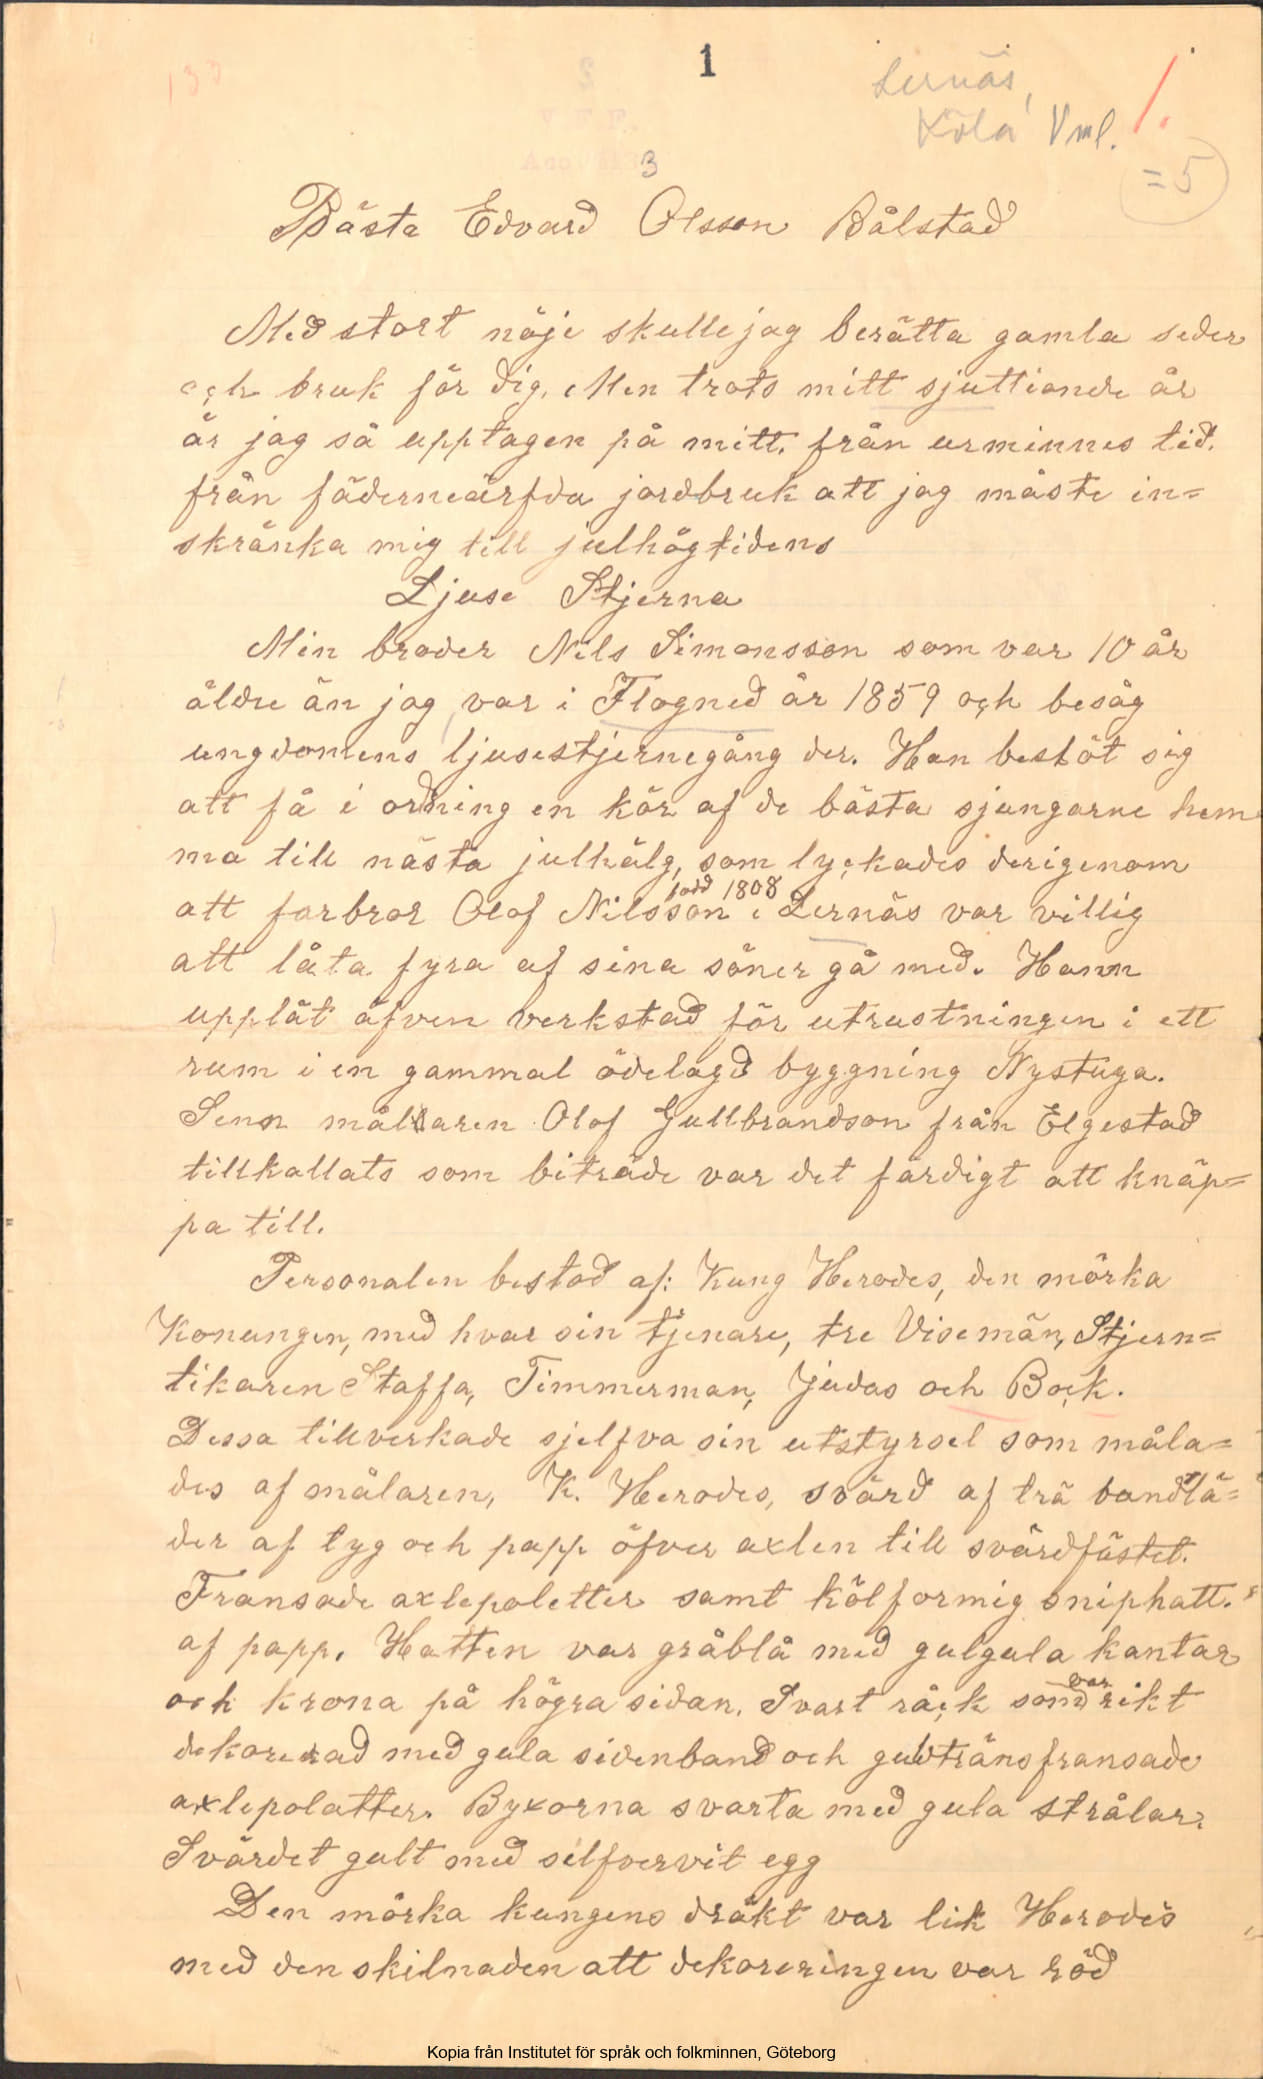 1
Lernäs,
Köla Vml.
1.
=5
3
Bästa Edvard Olsson Bålstad
Med stort nöje skulle jag berätta gamla seder
och bruk för dig. Men trots mitt sjuttionde år
är jag så upptagen på mitt. från urminnes tid.
från fäderneärfda jordbruk att jag måste in=
skränka mig till julhögtidens
Ljuse Stjerna
Min broder Nils Simonsson som var 10 år
äldre än jag, var i Flogned år 1859 och besåg
ungdomens ljusestjernegång der. Han beslöt sig
att få i ordning en kör af de bästa sjungarne hem
ma till nästa julhälg, som lyckades derigenom
född 1808
att farbror Olof Nilsson i Lernäs var villig
att låta fyra af sina söner gå med. Hann
upplät äfven verkstad för utrustningen i ett
rum i en gammal ödelagd byggning Nystuga.
Senn målaren Olof Gullbrandson från Elgestad
tillkallats som biträde var det färdigt att knäp=
pa till.
Personalen bestod af: Kung Herodes, den mörka
Konungen, med hvar sin tjenare, tre Visemän, Stjern=
tikaren Staffa, Timmerman, Judas och Bock.
Dessa tillverkade sjelfva sin utstyrsel som måla=
des af målaren, K. Herodes, svärd af trä bandtlä=
der af tyg och papp öfver axlen till svärdfästet.
Fransade axlepoletter samt kölformig sniphatt.
af papp. Hatten var gråblå med gulgula kantar
och krona på högra sidan. Svart råck som var rikt
dekorerad med gula sidenband och guldtränsfransade
axlepolatter. Byxorna svarta med gula strålar.
Svärdet gult med silfvervit egg
Den mörka kungens dräkt var lik Herodes
med den skilnaden att dekoreringen var röd
Kopia från Institutet för språk och folkminnen, Göteborg